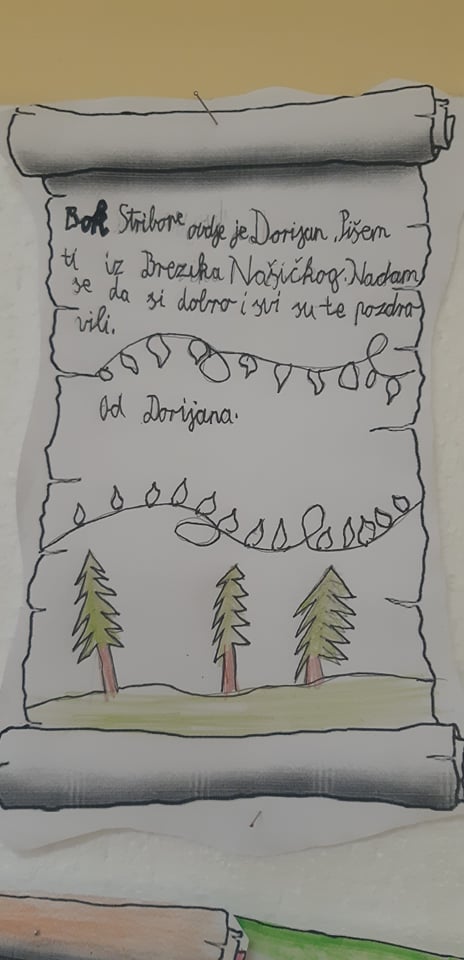 Bok Stribore ovdje je Dorijan. Pišem
ti iz Brezika Našičkog. Nadam
se da si dobro i svi su te pozdra
vili.
Od Dorijana.